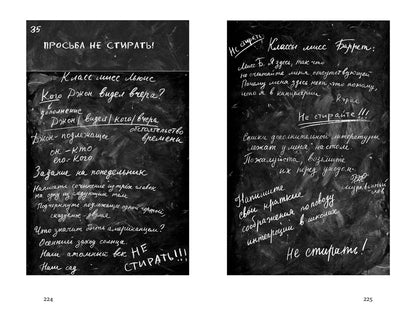 35
ПРОСЬБА НЕ СТИРАТЬ!
Класс мисс Льюис
Кого Джон видел вчера?
в
дополнение
Джон | видел | кого | вчера
Джон - подлежащее
обстоятельство
времени
он - кто
его - кого
Задание на понедельник
Написать сочинение из трех глав
на одну из следующих тем
Подчеркните подлежащее одной чертой
сказуемое - двумя.
Что значит быть американцем?
Осенний заход солнца
Наш атомный век
Наш сад
НЕ
СТИРАТЬ!!!
224
Не стирать
Классы мисс Баррет:
Мисс Б. Я здесь, так что
не считайте меня отсутствующей
Почему меня здесь нет, то потому,
что я в канцелярии
Не стирайте!!!
Списки дополнительной литературы
лежат у меня на столе
Пожалуйста, возьмите
их перед уходом-
Напишите
свои краткие
соображения по поводу
интеграции в школах.
Не стирать!
225